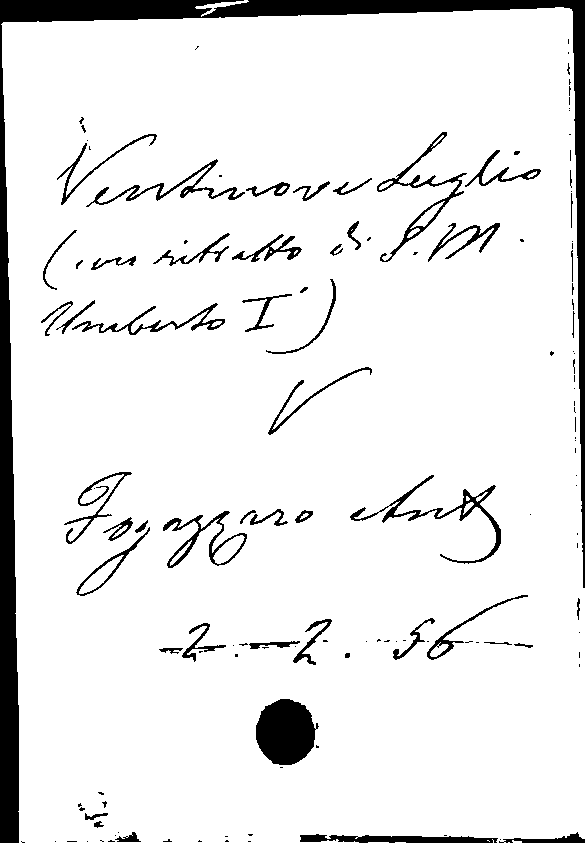 Ventinove Luglio
(con ritratto di S. M.
Umberto I°)
V
Fogazzaro Ant
2. 2. 56